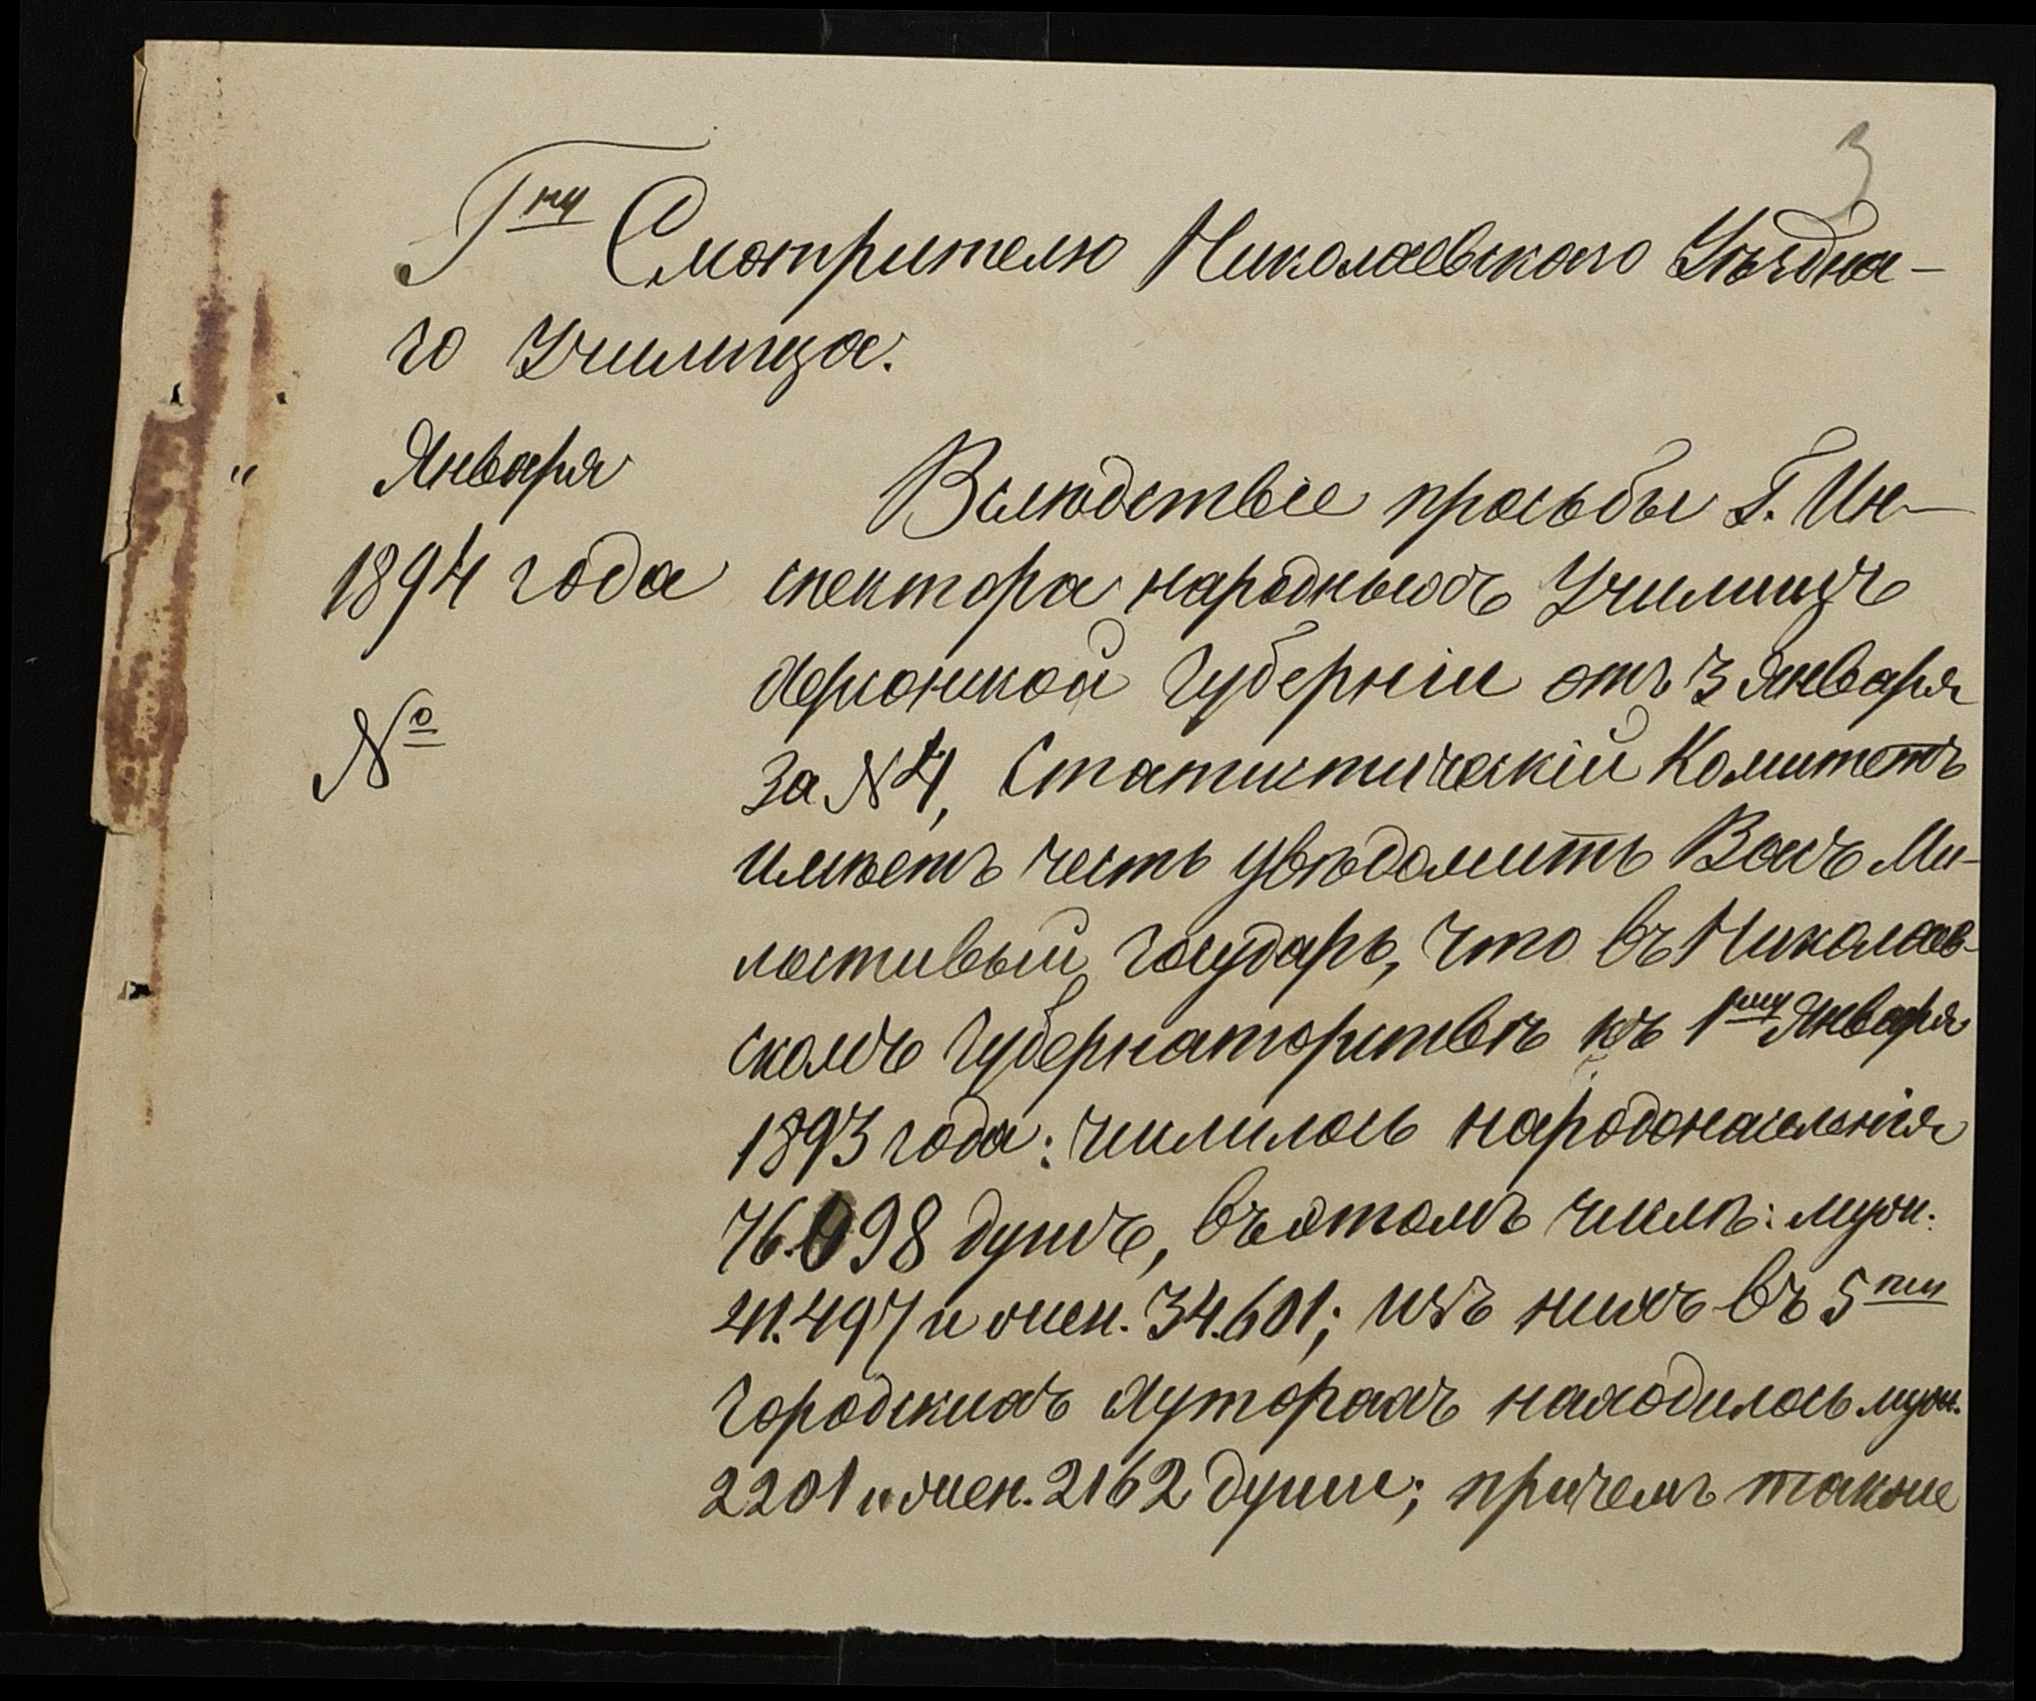 3
Гну Смотрителю Николаевскаго Уѣздна-
го Училища.
" Января
1894 года
№
Вслѣдствіе просьбы Г. Ин-
спектора народныхъ Училищъ
Херсонской Губерніи отъ 3 Января
за № 4, Статистическій Комитетъ
имѣетъ честь увѣдомить Васъ Ми-
лостивый Государь, что въ Николаев-
скомъ Губернаторствѣ къ 1му Января
1893 года: числилось народонаселенія
76.098 душъ, въ этомъ числѣ: муж.
41.497 и жен. 34.601; изъ нихъ въ 5ти
Городскихъ Хуторахъ находилось муж.
2201 и жен. 2162 души; причемъ также